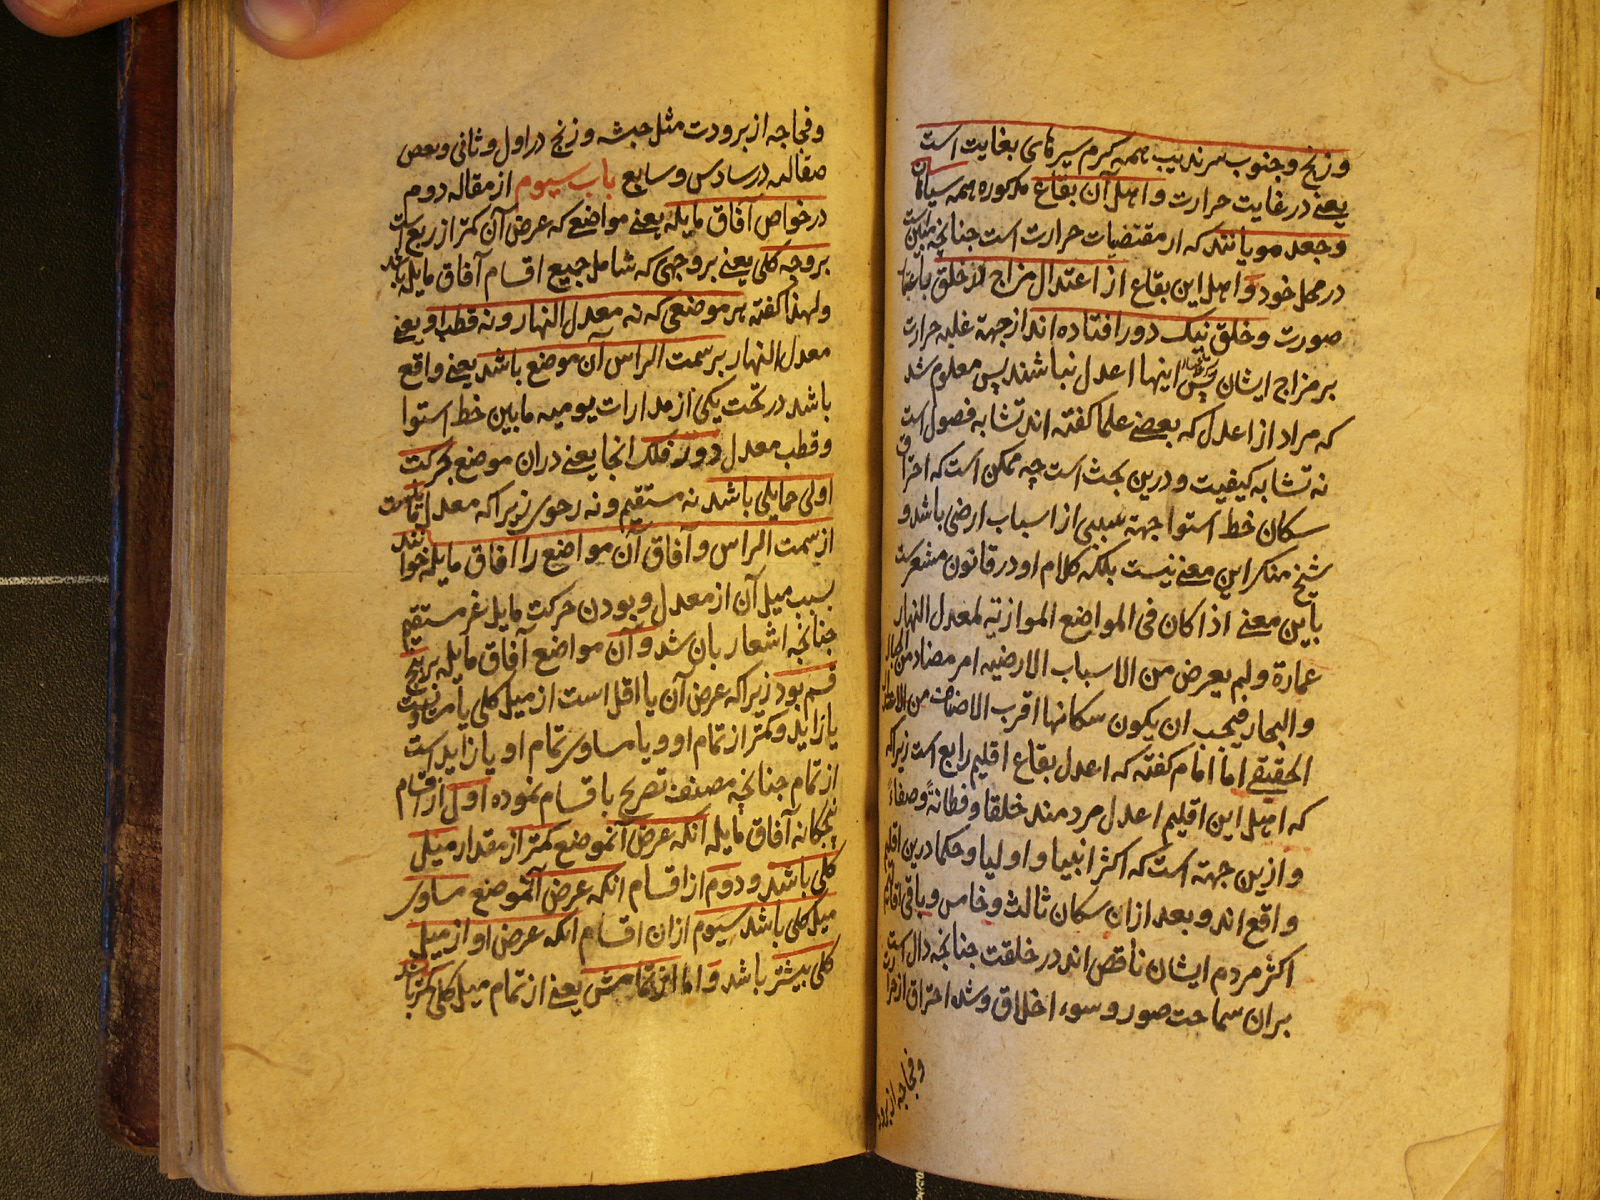 وزنج و جنوب سرندیب همه گرم سیرهای بغایت است
یعنے در غایت حرارت و اهل آن بقاع مذکوره همه سیاهان
و جعد مویانند که از مقتضیات حرارت است چنانچه مبین است
در محل خود و اهل این بقاع از اعتدال مزاج لا خلق باعتبار
صورت و خلق نیک دور افتاده اند از جهة غلبه حرارت
بر مزاج ایشان پس اینها اعدل نباشند پس معلوم شد
که مراد از اعدل که بعضے علما کفته اند تشابه فصول است
نه تشابه کیفیت و درین بحث است چه ممکن است که احتراق
سکان خط استوا جهة سببی از اسباب ارضی باشد و
شیخ منکر این معنے نیست بلکه کلام او در قانون مشعرست
باین معنے اذا کان فی المواضع الموازیه لمعدل النهار
عمارة ولم یعرض من الاسباب الارضیه امر مضاد من الجبال
والبحار فیجب ان یکون سکانها اقرب الاصناف من الاعتدال
الحقیقے اما امام کفته که اعدل بقاع اقلیم رابع است زیراکه
که اهل این اقلیم اعدل مردمند خلقا و فطانة وصفاء
و ازین جهة است که اکثر انبیا و اولیا و حکما درین اقلیم
واقع اند و بعد ازان سکان ثالث و خامس و باقی اقالیم
اکثر مردم ایشان ناقص اند در خلقت چنانچه دال است
بران سماجت صور و سوء اخلاق و شده احتراق از حرارت
وفجاجه از برودت
وفجاجه از برودت مثل حبشه و زنج در اول و ثانی و بعض
صقالبه در سادس و سابع باب سیوم از مقاله دوم
در خواص آفاق مایله یعنے مواضعے که عرض آن کمتر از ربع است
بر وجه کلی یعنے بر وجهی که شامل جمیع اقسام آفاق مایله باشد
ولهذا کفته هر موضعی که نه معدل النهار و نه قطب او یعنے
معدل النهار بر سمت الراس آن موضع باشد یعنے واقع
باشد در تحت یکی از مدارات یومیه مابین خط استوا
و قطب معدل دور فلک انجا یعنے دران موضع بحرکت
اولی حمایلی باشد نه مستقیم و نه رحوی زیراکه معدل مایل است
از سمت الراس و آفاق آن مواضع را افاق مایله خوانند
بسبب میل آن از معدل و بودن حرکت مایل غیر مستقیم
چنانچه اشعار بان شد و آن مواضع آفاق مایله بر پنج
قسم بود زیراکه عرض آن یا اقل است از میل کلی یا مساویست
یا زاید و کمتر از تمام او و یا مساوی تمام او یا زاید است
از تمام چنانچه مصنف تصریح باقسام نموده اول از اقسام
پنجکانه آفاق مایله انکه عرض آنموضع کمتر از مقدار میل
کلی باشد و دوم از اقسام انکه عرض آنموضع مساوی
میل کلی باشد سیوم ازان اقسام انکه عرض او از میل
کلی بیشتر باشد و اما از تمامش یعنے از تمام میل کلی کمتر باشد